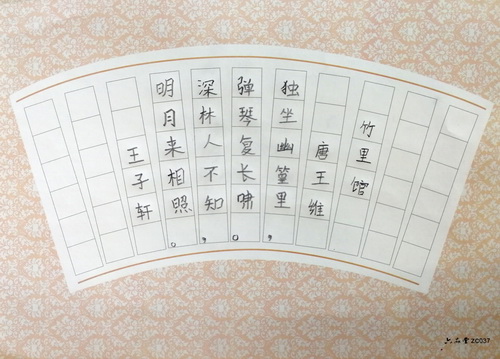 竹里馆
唐王维
独坐幽篁里，
弹琴复长啸。
深林人不知，
明月来相照。
王子轩
六品堂 ZC037